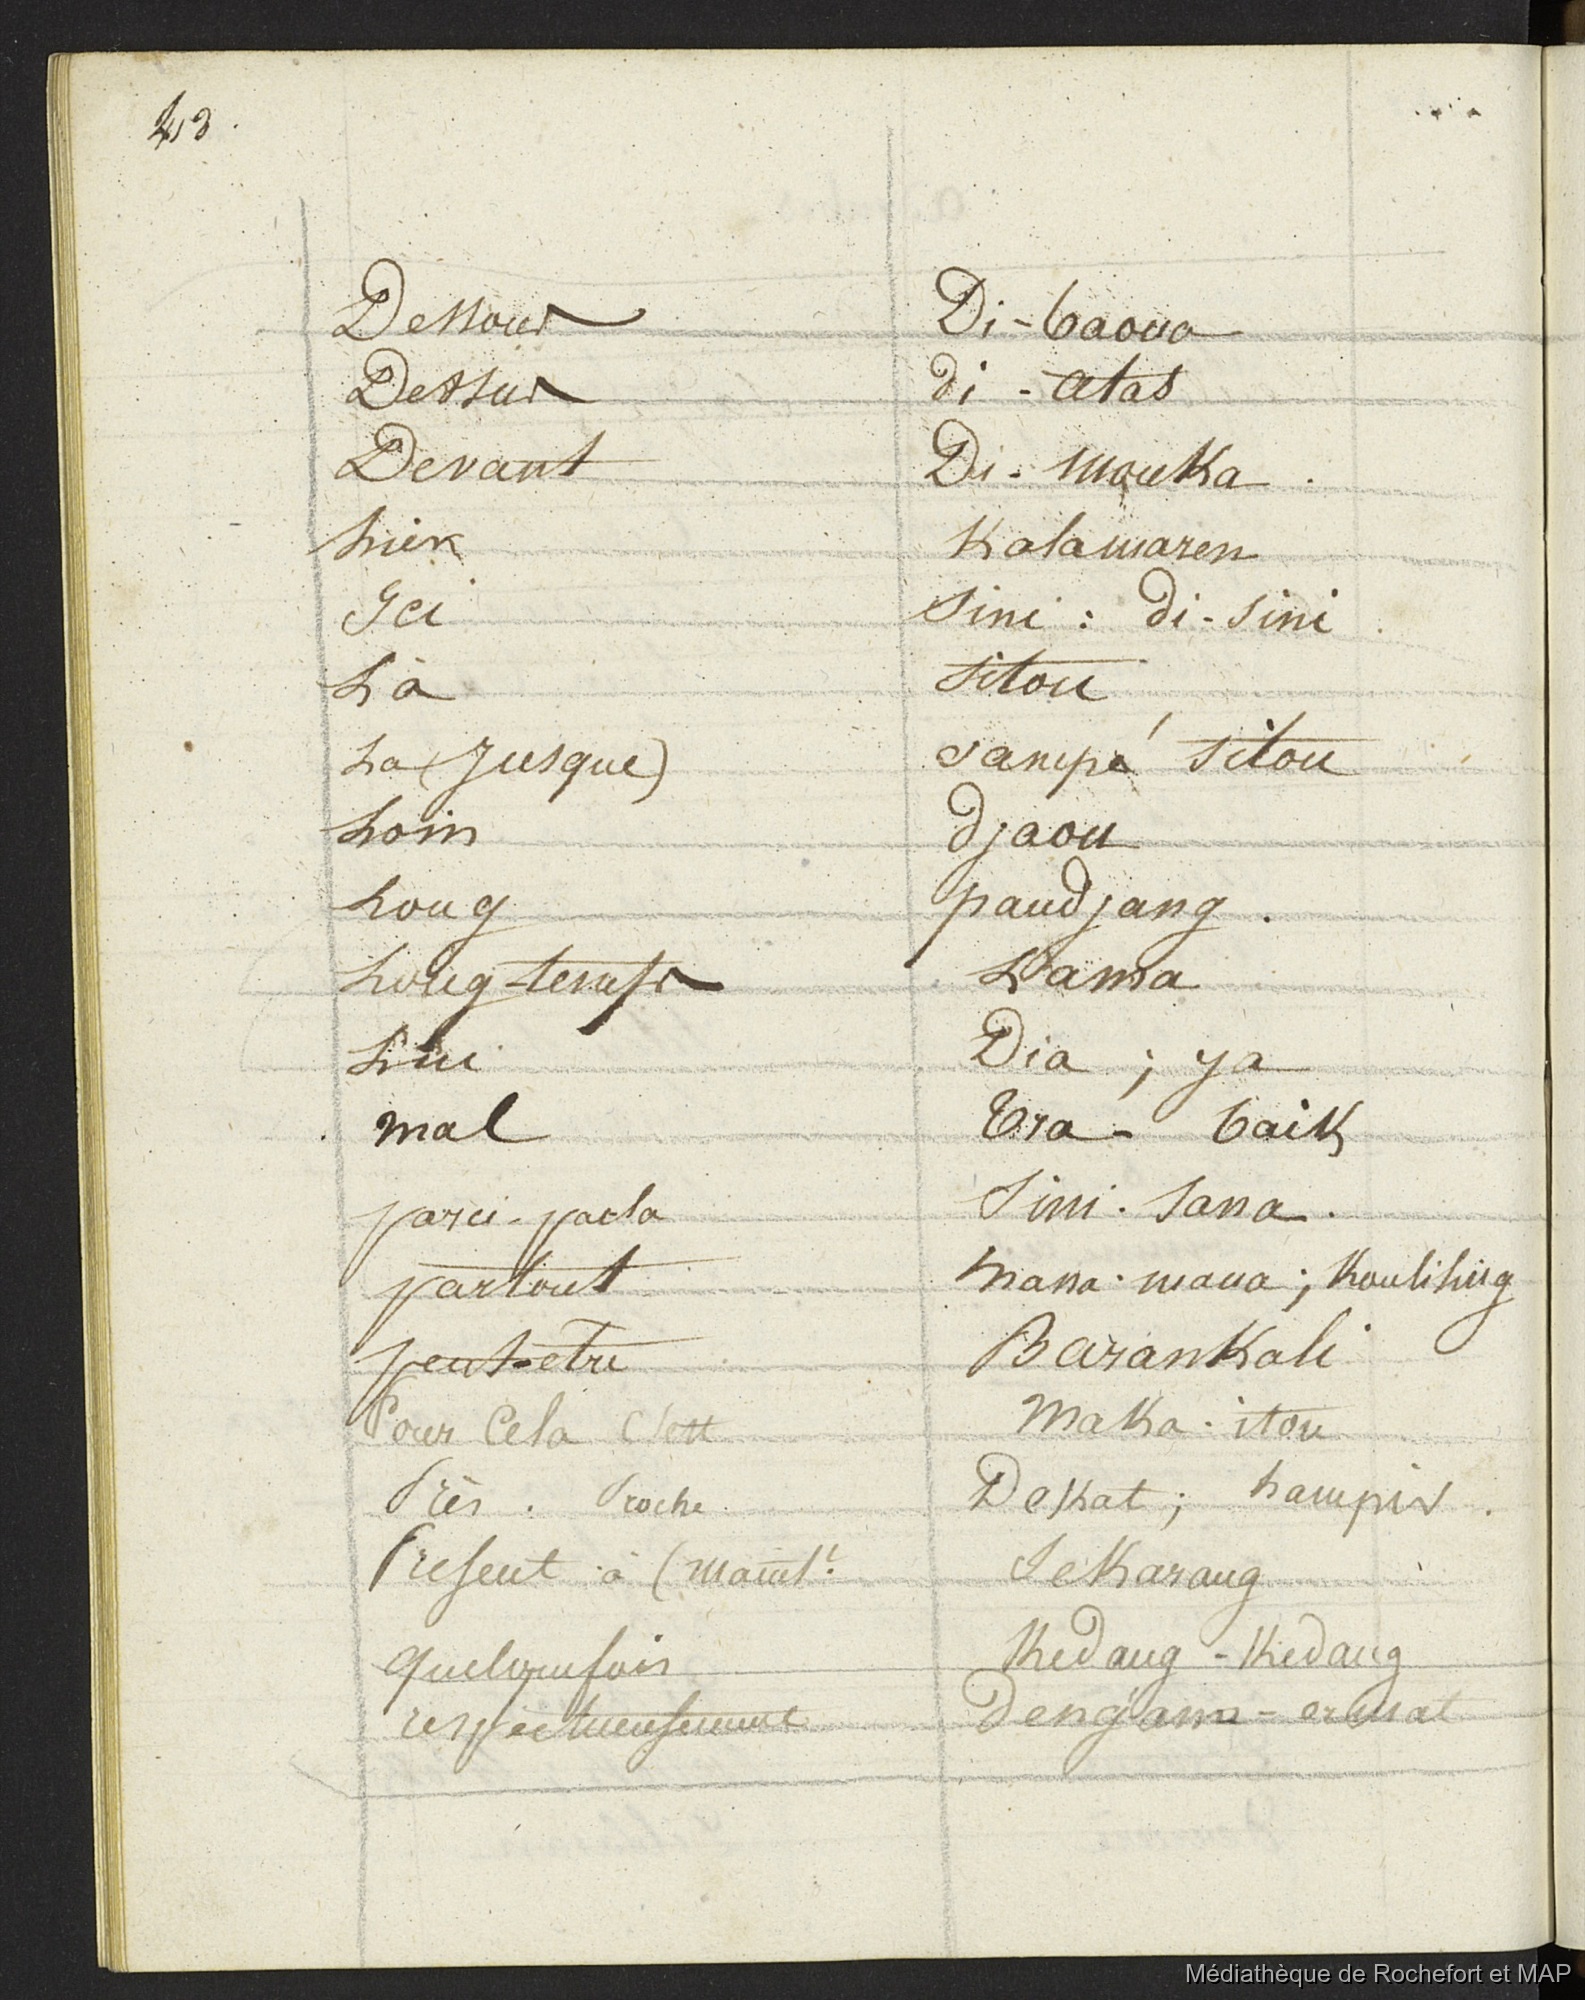 43.
Dessous Di-baoua
Dessus di-atas
Devant Di-mouka.
hier Kalamaren
Ici Sini : di-sini
Là Sitou
La (Jusque) sampé Sitou
Loin djaou
Long pandjang.
Long-temps Lama
Lui Dia ; ya
mal Tra-baik
parci-parla Sini-sana.
partout mana-mana ; Kouliling
peut-etre Barankali
Pour Cela C'est Maka-itou
Près. Proche Dekat ; hampir.
Present à (maint.t Sekarang
quelquefois Kedang-Kedang
respectueusement Deng'ann-ermat
Médiathèque de Rochefort et MAP